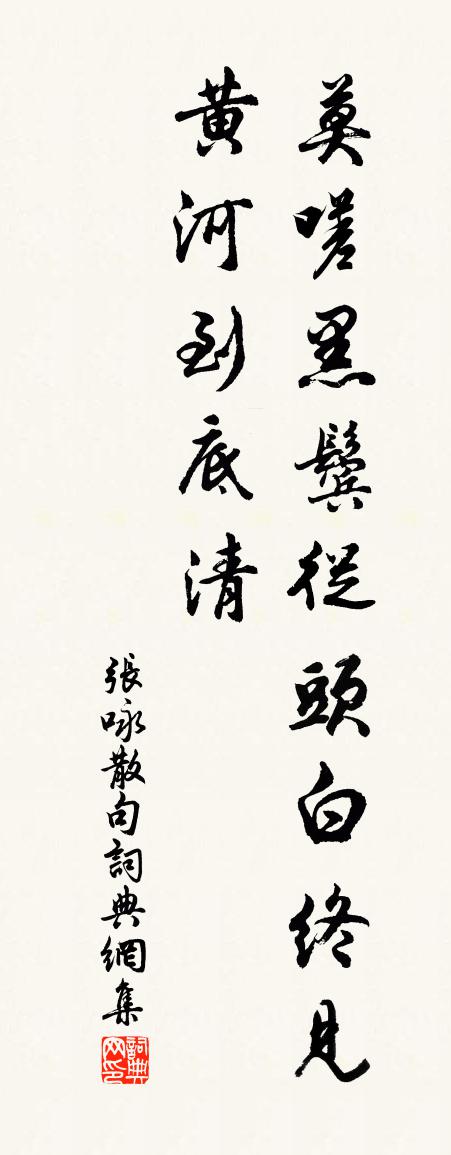 莫嗟黑鬢從頭白終見
黃河到底清
張咏散句詞典網集
詞典网印